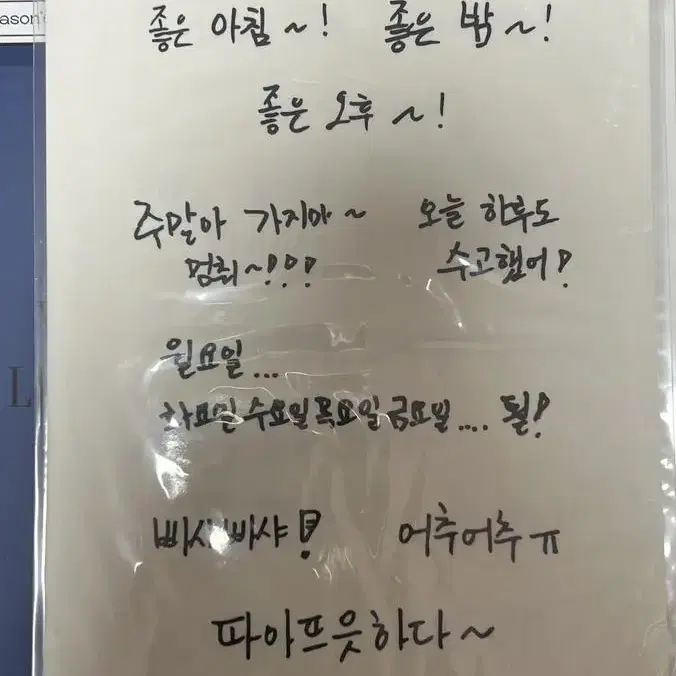 ason's
좋은 아침~! 좋은 밤~!
좋은 오후~!
주말아 가지마~ 오늘 하루도
멈춰~!!! 수고했어!
월요일...
화요일수요일목요일금요일.... 퇼!
빠샤빠샤! 어추어추ㅠ
파아프읏하다~
L